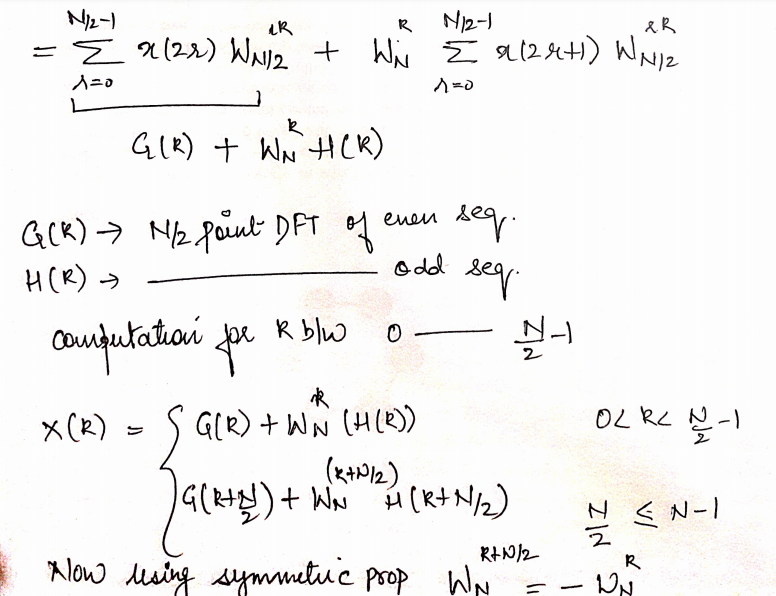 = Σ_{r=0}^{N/2-1} x(2r) W_{N/2}^{rk} + W_N^k Σ_{r=0}^{N/2-1} x(2r+1) W_{N/2}^{rk}
G(k) + W_N^k H(k)
G(k) → N/2 point DFT of even seq.
H(k) → ———————— odd seq.
computation for k b/w 0 ——— N/2 -1
X(k) = { G(k) + W_N^k (H(k)) 0< k< N/2 -1
G(k+N/2) + W_N^{(k+N/2)} H(k+N/2) N/2 ≤ N-1
Now using symmetric prop W_N^{k+N/2} = - W_N^k